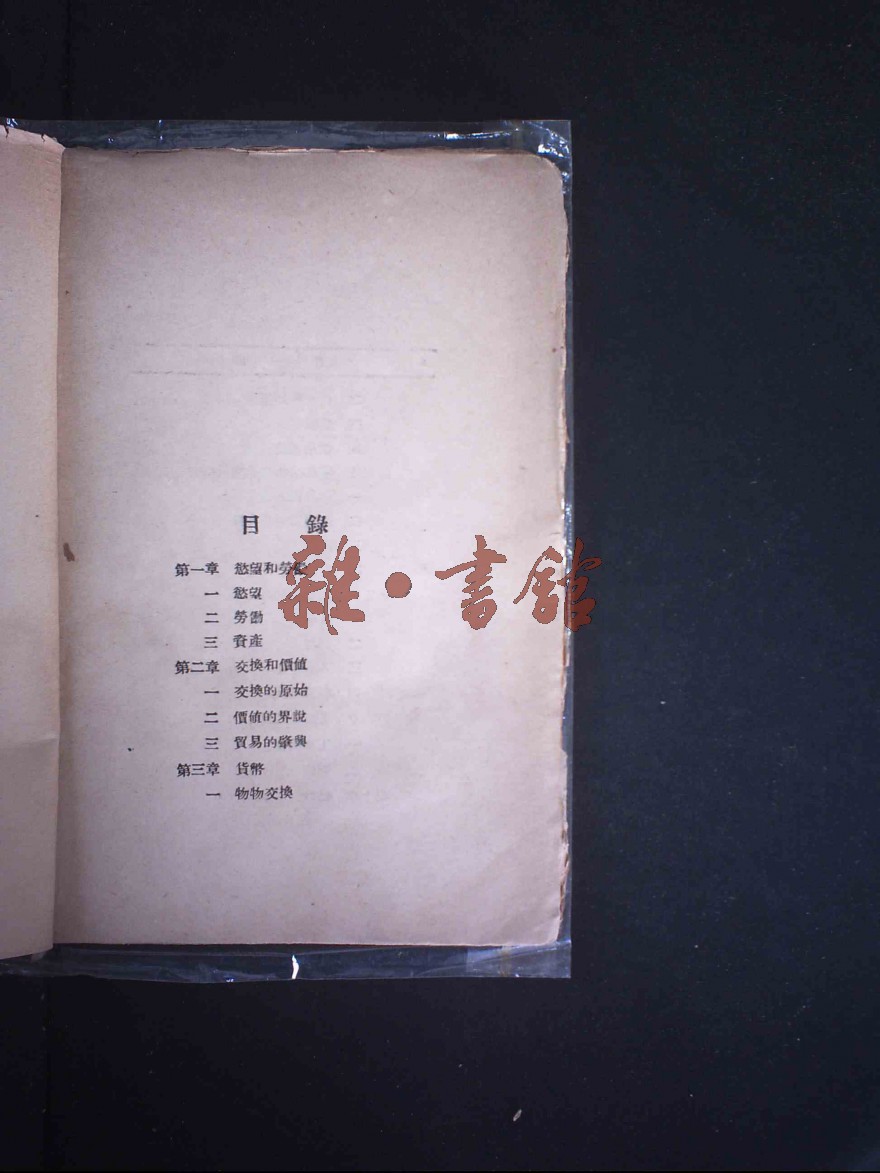 目錄
第一章 慾望和勞働
一 慾望
二 勞働
三 資產
第二章 交換和價値
一 交換的原始
二 價値的界說
三 貿易的肇興
第三章 貨幣
一 物物交換
雜·書館